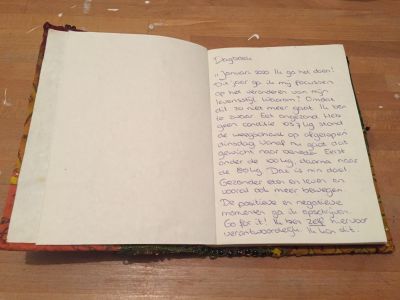 Dagboek
1 Januari 2020 Ik ga het doen!
Dit jaar ga ik mij focussen
op het veranderen van mijn
levensstijl. Waarom? Omdat
dit zo niet meer gaat. Ik ben
te zwaar. Eet ongezond. Heb
geen conditie. 107 kg stond
de weegschaal op afgelopen
dinsdag. Vanaf nu gaat dat
gewicht naar beneden. Eerst
onder de 100 kg, daarna naar
de 85 kg. Dat is mijn doel.
Gezonder eten en leven en
vooral ook meer bewegen.
De positieve en negatieve
momenten ga ik opschrijven.
Go for it! Ik ben zelf hiervoor
verantwoordelijk. Ik kan dit.